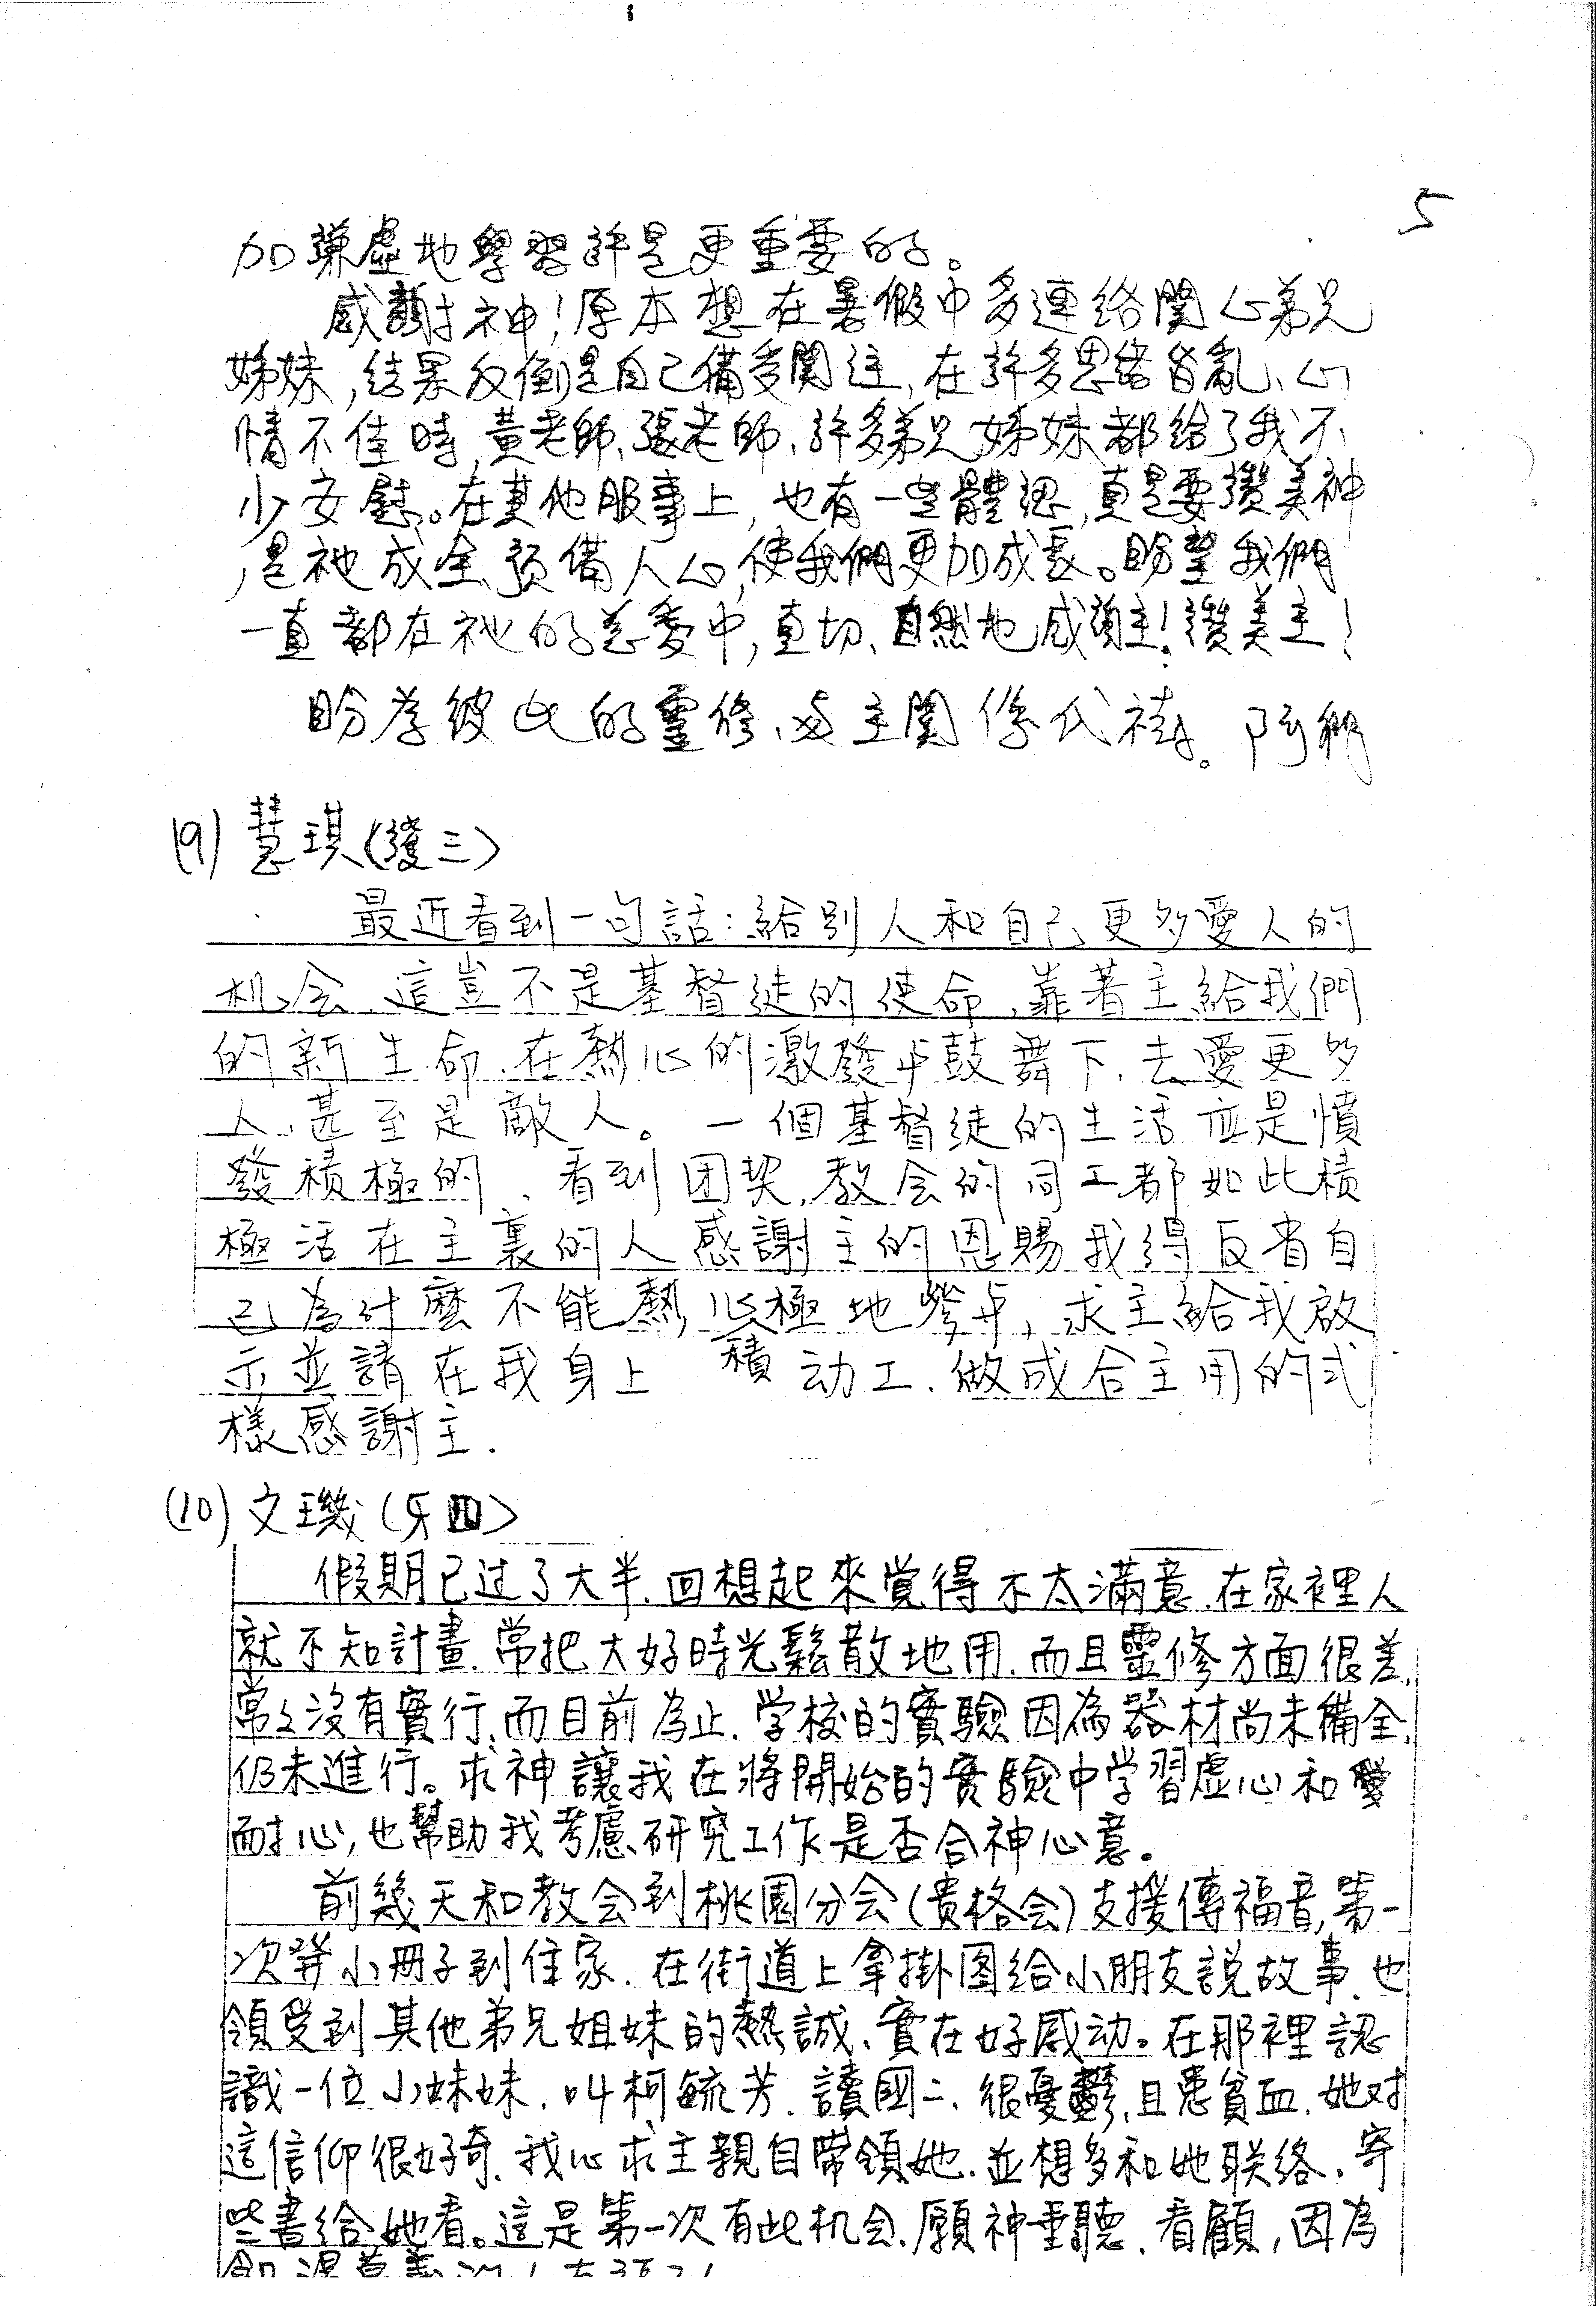 5
加謙虛地學習許是更重要的。
感謝神!原本想在暑假中多連絡関心弟兄
姊妹,結果反倒是自己備受関注,在許多思緒皆亂、心
情不佳時,黃老師、張老師、許多弟兄姊妹都給了我不
少安慰。在其他服事上,也有一些體認,真是要讚美神
,是祂成全、預備人心,使我們更加成長。盼望我們
一直都在祂的慈愛中,直切、自然地感謝主!讚美主!
盼為彼此的靈修、與主関係代禱。
(9) 慧琪(護三)
最近看到一句話:給別人和自己更多愛人的
机会、這豈不是基督徒的使命、靠著主給我們
的新生命、在熱心的激發与鼓舞下、去愛更多
人、甚至是敵人。一個基督徒的生活應是憤
發積極的、看到团契,教会的同工都如此積
極活在主裏的人感謝主的恩賜我得反省自
己為什麼不能熱心積極地參与,求主給我啟
示並請在我身上动工.做成合主用的式
樣感謝主.
(10) 文璣(牙四)
假期已过了大半.回想起來覚得不太滿意.在家裡人
就不知計畫.常把大好時光鬆散地用.而且靈修方面很差.
常々沒有實行.而目前為止.学校的實驗因為器材尚未備全.
仍未進行。求神讓我在將開始的實驗中学習虛心和
耐心,也幫助我考慮研究工作是否合神心意。
前幾天和教会到桃園分会(貴格会)支援傳福音,第一
次發小冊子到住家.在街道上拿掛图給小朋友說故事.也
領受到其他弟兄姐妹的熱誠、實在好感动。在那裡認
識一位小妹妹.叫柯毓芳.讀國二.很憂鬱,且患貧血.她对
這信仰很好奇.我心求主親自帶領她.並想多和她联络.寄
些書給她看。這是第一次有此机会.願神垂聽.看顧,因為